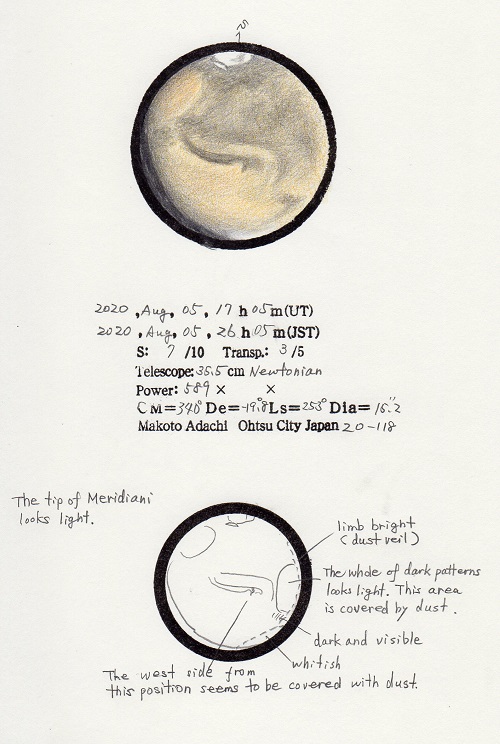 S
2020, Aug, 05, 17 h 05 m (UT)
2020, Aug, 05, 26 h 05 m (JST)
S: 7 /10 Transp.: 3 /5
Telescope: 35.5 cm Newtonian
Power: 589 × ×
CM=340° De=-19.°8 Ls=253° Dia= 15."2
Makoto Adachi Ohtsu City Japan 20-118
The tip of Meridiani
looks light.
limb bright
(dust veil)
The whole of dark patterns
looks light. This area
is covered by dust.
dark and visible
whitish
The west side from
this position seems to be covered with dust.